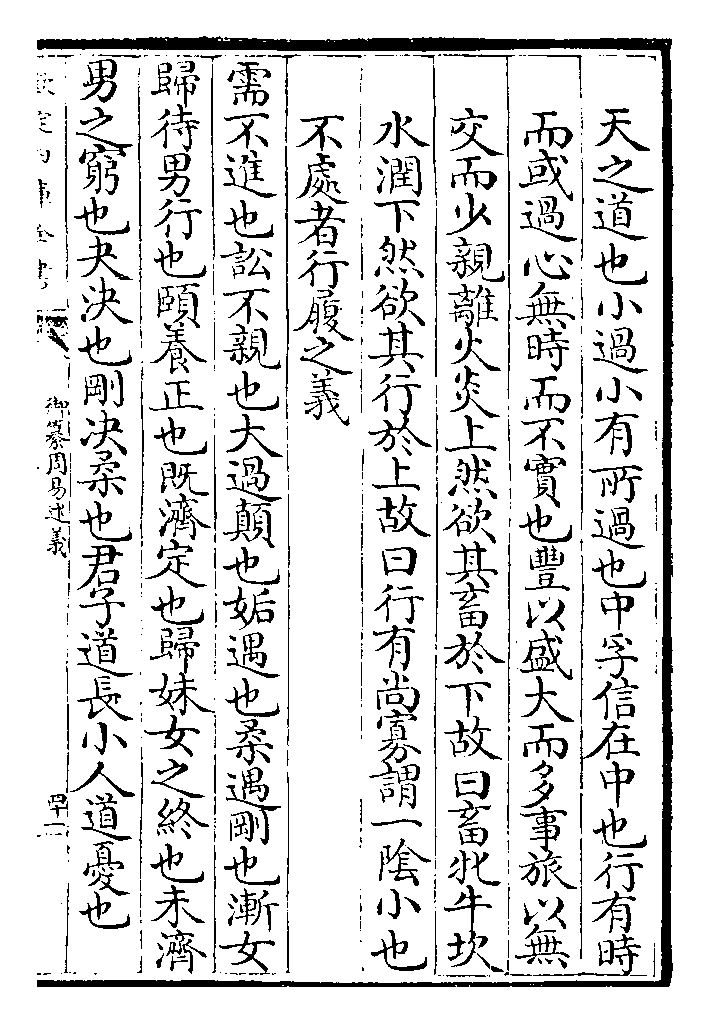 天之道也小過小有所過也中孚信在中也行有時
而或過心無時而不實也豐以盛大而多事旅以無
交而少親離火炎上然欲其畜於下故曰畜牝牛坎
水潤下然欲其行於上故曰行有尚寡謂一陰小也
不處者行履之義
需不進也訟不親也大過顛也姤遇也柔遇剛也漸女
歸待男行也頤養正也既濟定也歸妹女之終也未濟
男之窮也夬決也剛決柔也君子道長小人道憂也
欽定四庫全書
御纂周易述義